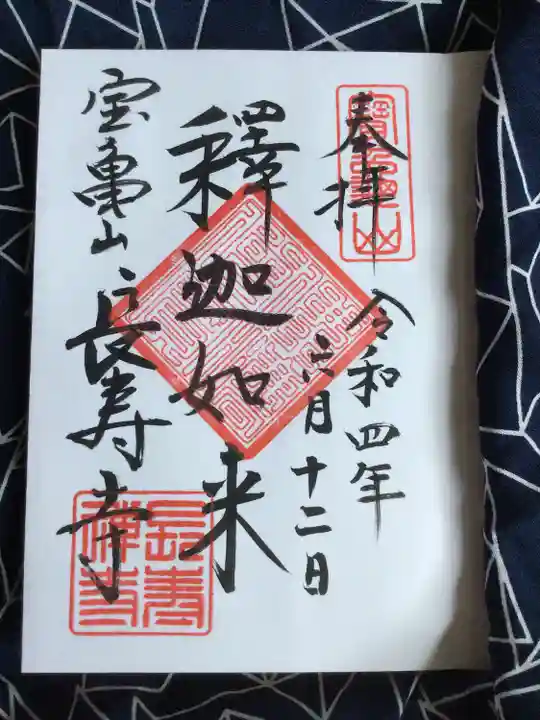 奉拝
令和四年
六月十二日
釋迦如来
宝亀山
長寿寺
長壽
禅寺